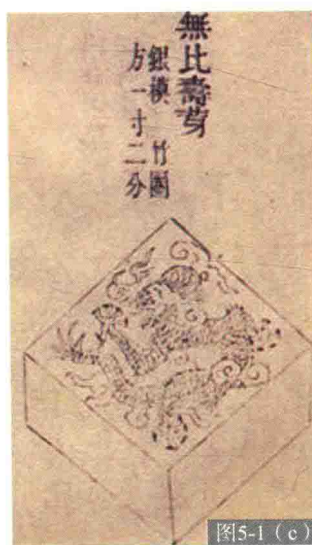 無比壽芽
銀模 竹圈
方一寸二分
图5-1（c）